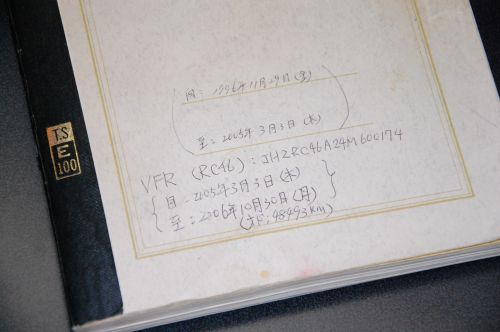 T.S
E
100
自: 1996年11月29日(金)
至: 2005年3月3日(木)
VFR (RC46): JH2RC46A24M600174
自: 2005年3月3日(木)
至: 2006年10月30日(月)
(オド; 98493km)